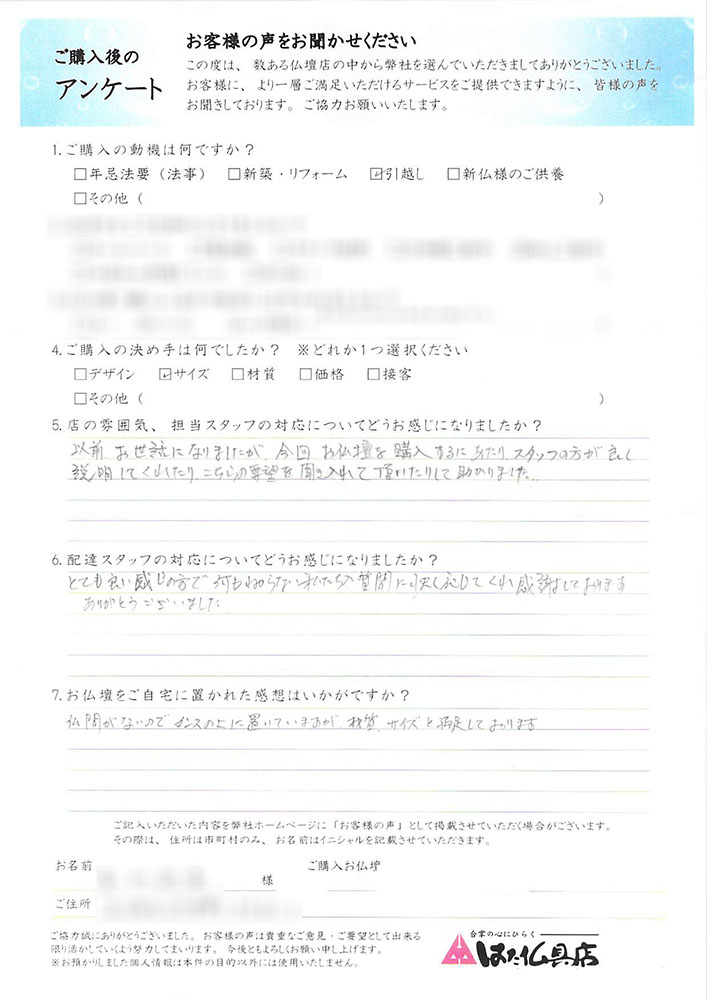 ご購入後の
アンケート
お客様の声をお聞かせください
この度は、数ある仏壇店の中から弊社を選んでいただきましてありがとうございました。
お客様に、より一層ご満足いただけるサービスをご提供できますように、皆様の声を
お聞きしております。ご協力お願いいたします。
1.ご購入の動機は何ですか？
□年忌法要（法事） □新築・リフォーム ☑引越し □新仏様のご供養
□その他（ ）
4.ご購入の決め手は何でしたか？ ※どれか1つ選択ください
□デザイン ☑サイズ □材質 □価格 □接客
□その他（ ）
5.店の雰囲気、担当スタッフの対応についてどうお感じになりましたか？
以前、お世話になりましたが、今回お仏壇を購入するにあたり、スタッフの方が良く
説明してくれたり、こちらの要望を聞き入れて頂いたりして助かりました。
6.配達スタッフの対応についてどうお感じになりましたか？
とても良い感じの方で何もわからない私たちの質問に快く応じてくれ感謝しております
ありがとうございました
7.お仏壇をご自宅に置かれた感想はいかがですか？
仏間がないのでタンスの上に置いていますが、材質、サイズと満足しております
ご記入いただいた内容を弊社ホームページに「お客様の声」として掲載させていただく場合がございます。
その際は、住所は市町村のみ、お名前はイニシャルを記載させていただきます。
お名前 様 ご購入お仏壇
ご住所
ご協力誠にありがとうございました。お客様の声は貴重なご意見・ご要望として出来る
限り活かしていくよう努力してまいります。今後ともよろしくお願い申し上げます。
※お預かりしました個人情報は本件の目的以外には使用いたしません。
合掌の心にひらく
はた仏具店